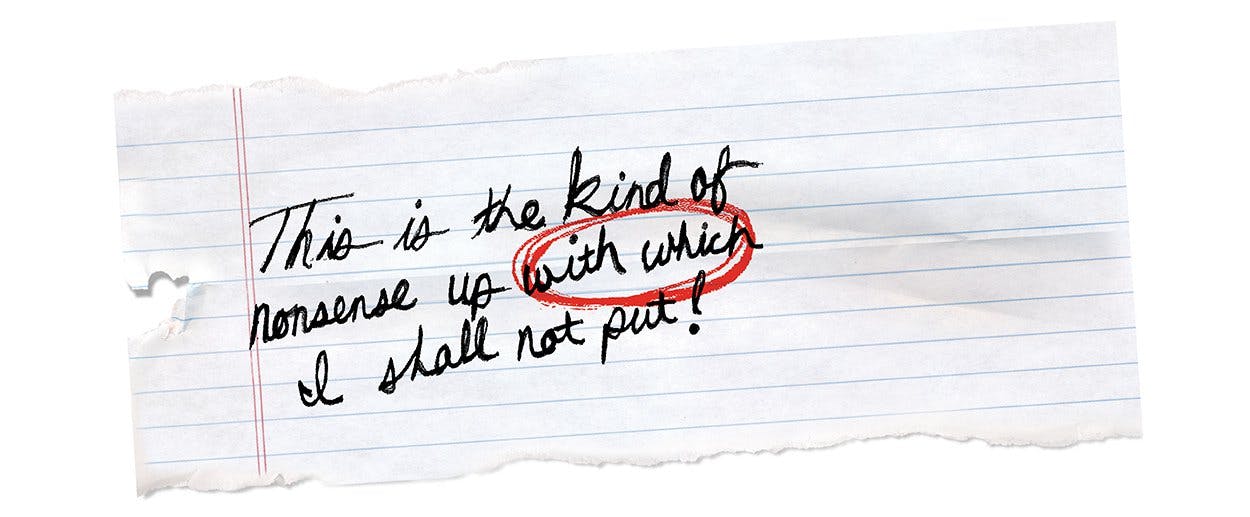 This is the kind of
nonsense up with which
I shall not put!